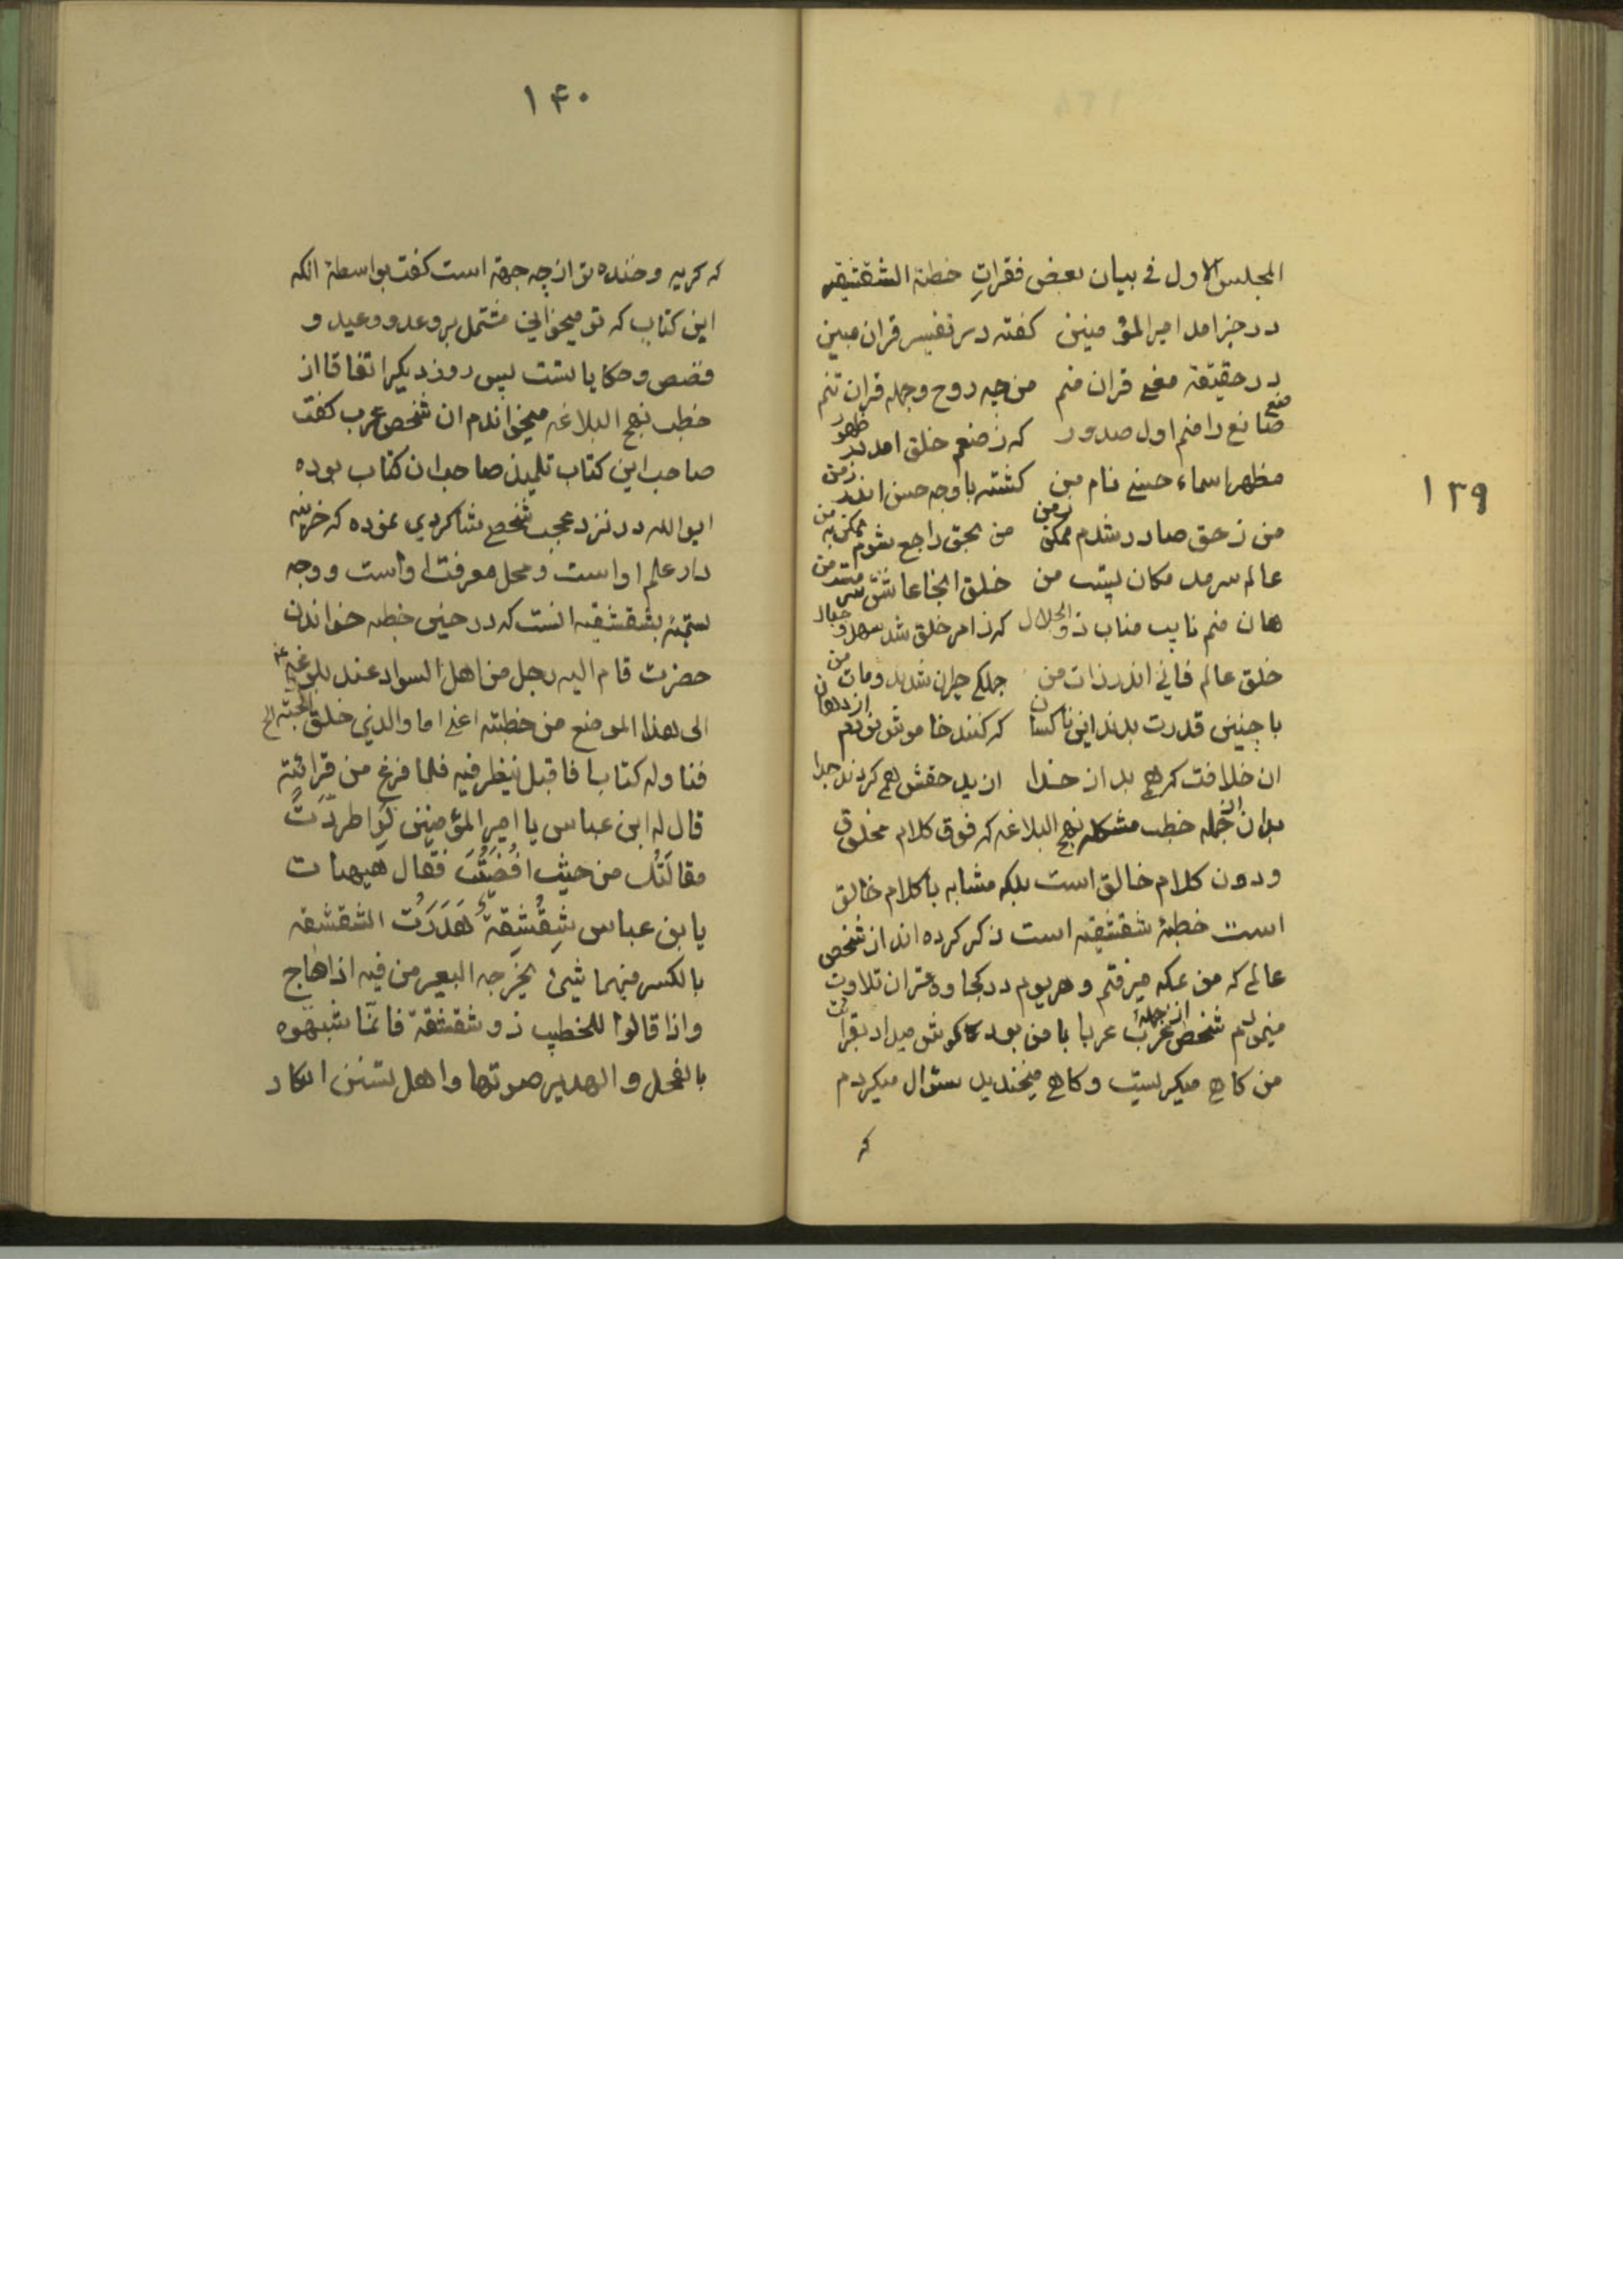 ۱۳۹
المجلس الاول فی بیان بعض فقراتِ خطبة الشقشقیه
در خبر امد امیر المؤمنین کفته در تفسیر قران مبین
در حقیقة معنی قران منم من چه روح و جمله قران تنم
صنع صانع را منم اول صدور که ز صنعم خلق امد در ظهور
مظهر اسماء حسنی نام من کشته با وجه حسن اندر زمن
من ز حق صادر شدم ممکن ز من من بحق راجع شوم ممکن به من
عالم سرمد مکان لیتب من خلق انجا عاشق
هان منم نایب مناب ذو الجلال کز امر خلق شد سهل و جبال
خلق عالم فانی اندر ذات من جملکی حیران شدند و مات من
با چنین قدرت بدند این ناکسان که کنند خاموش نورم از دهان
ان خلافت کرهی بد از خدا از ید حقش هم کردند جدا
بدان از جمله خطب مشکله نهج البلاغه که فوق کلام مخلوق
و دون کلام خالق است بلکه مشابه با کلام خالق
است خطبهٔ شقشقیه است ذکر کرده اند از شخص
عالم که من بمکه میرفتم و هر یوم در کجاوه قران تلاوت
مینمودم شخص عرب از جمله عربا با من بود کاه کوش میداد بقرائت
من کاهی میکریست و کاهی میخندید سئوال میکردم
که
۱۴۰
که کریه و خنده تو از چه جهة است کفت بواسطهٔ انکه
این کتاب که تو میخوانی مشتمل بر وعد و وعید و
قصص و حکایاتست پس روز دیکر اتفاقا از
خطب نهج البلاغه میخواندم ان شخص عرب کفت
صاحب این کتاب تلمیذ صاحب ان کتاب بوده
ایو الله در نزد عجب شخصی شاکردی نموده که خزینه
دار علم او است و محل معرفت او است و وجه
تسمیهٔ بشقشقیه انست که در حین خطبه خواندن
حضرت قام الیه رجل من اهل السواد عند بلوغه ع
الی هذا الموضع من خطبته اعنی اما والذی خلق الحبة الخ
فناوله کتابا فاقبل ینظر فیه فلما فرغ من قرائته
قال له ابن عباس یا امیر المؤمنین لَوِ اطردَت
مقالَتُک من حیث افضَیتَ فقال هیهات
یا بن عباس شِقْشِقَةٌ هَدَرَتْ الشقشقه
بالکسر فیهما شیئ یخرجه البعیر من فیه اذا هاج
و اذا قالوا للخطیب ذو شقشقة فانّما شبّهوه
بالفحل و الهدیر صوتها و اهل تسنن انکار